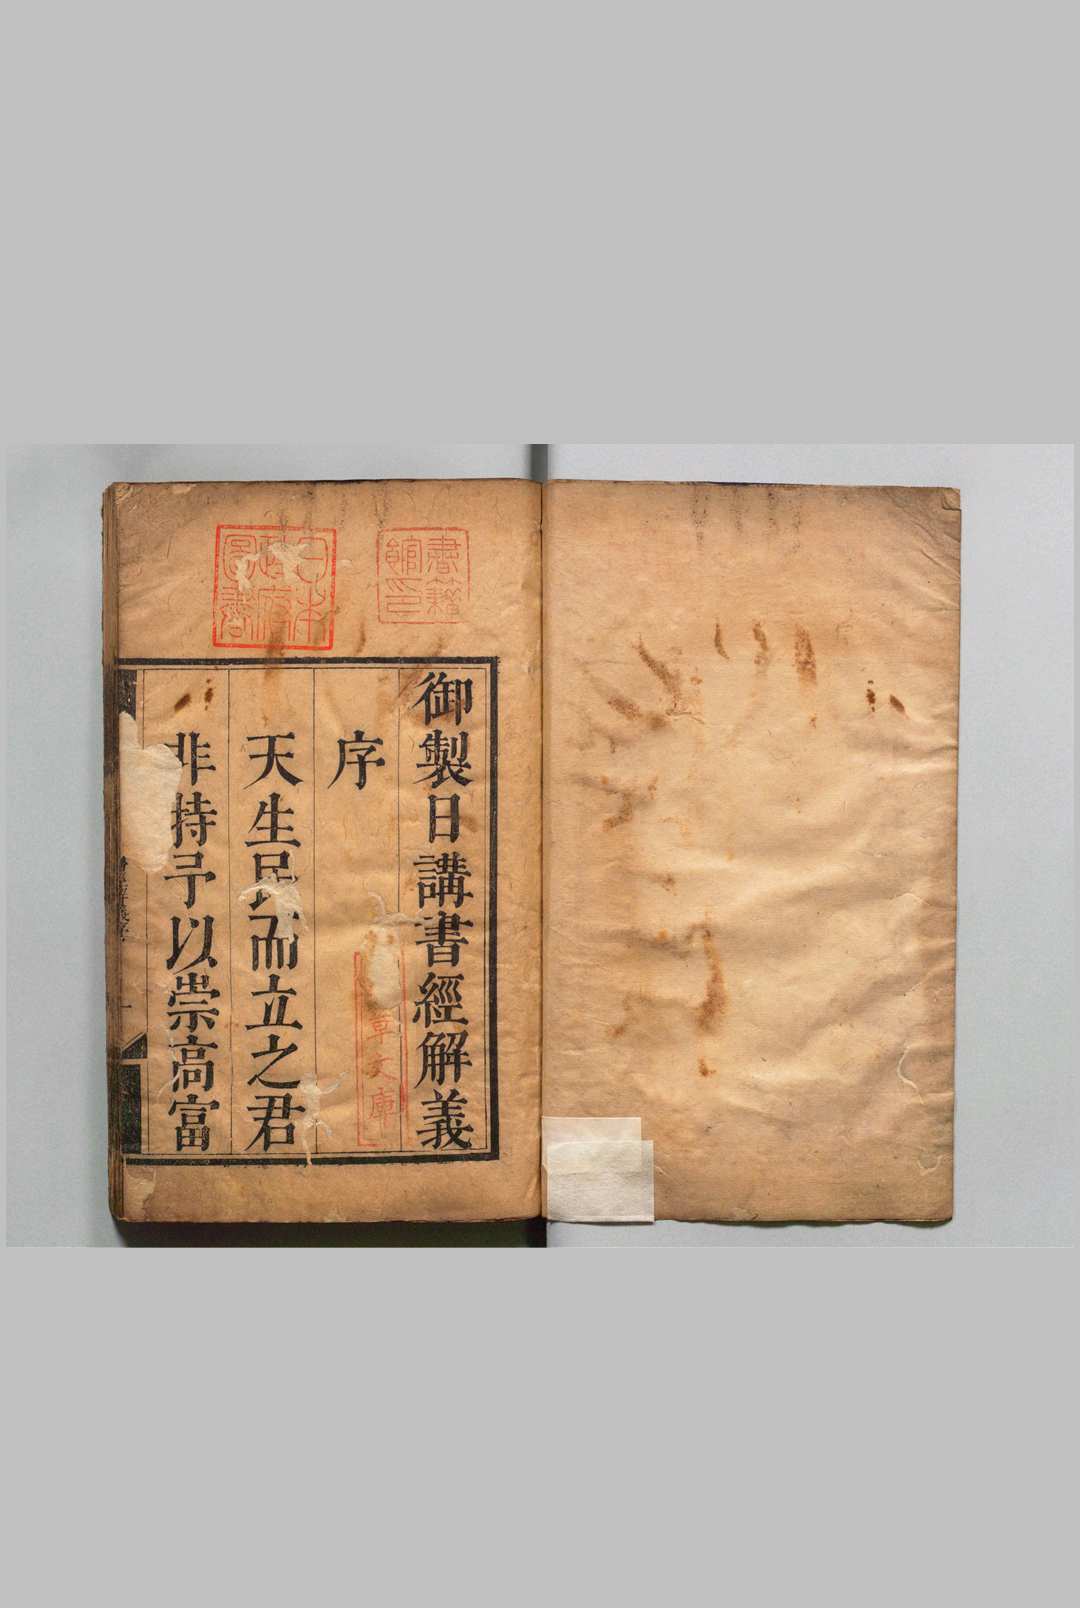 御製日講書經解義
序
天生民而立之君
非特予以崇高富
書籍館印
日本政府圖書
章文庫